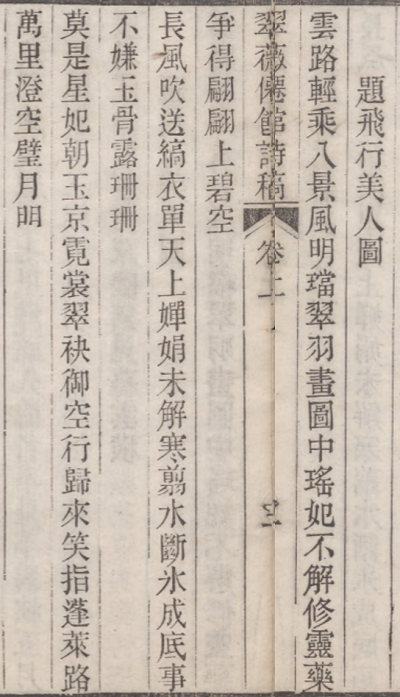 題飛行美人圖
雲路輕乘八景風明璫翠羽畫圖中瑤妃不解修靈藥
翠薇僊館詩稿 卷上
爭得翩翩上碧空
長風吹送縞衣單天上嬋娟未解寒翦水斷氷成底事
不嫌玉骨露珊珊
莫是星妃朝玉京霓裳翠袂御空行歸來笑指蓬萊路
萬里澄空璧月明